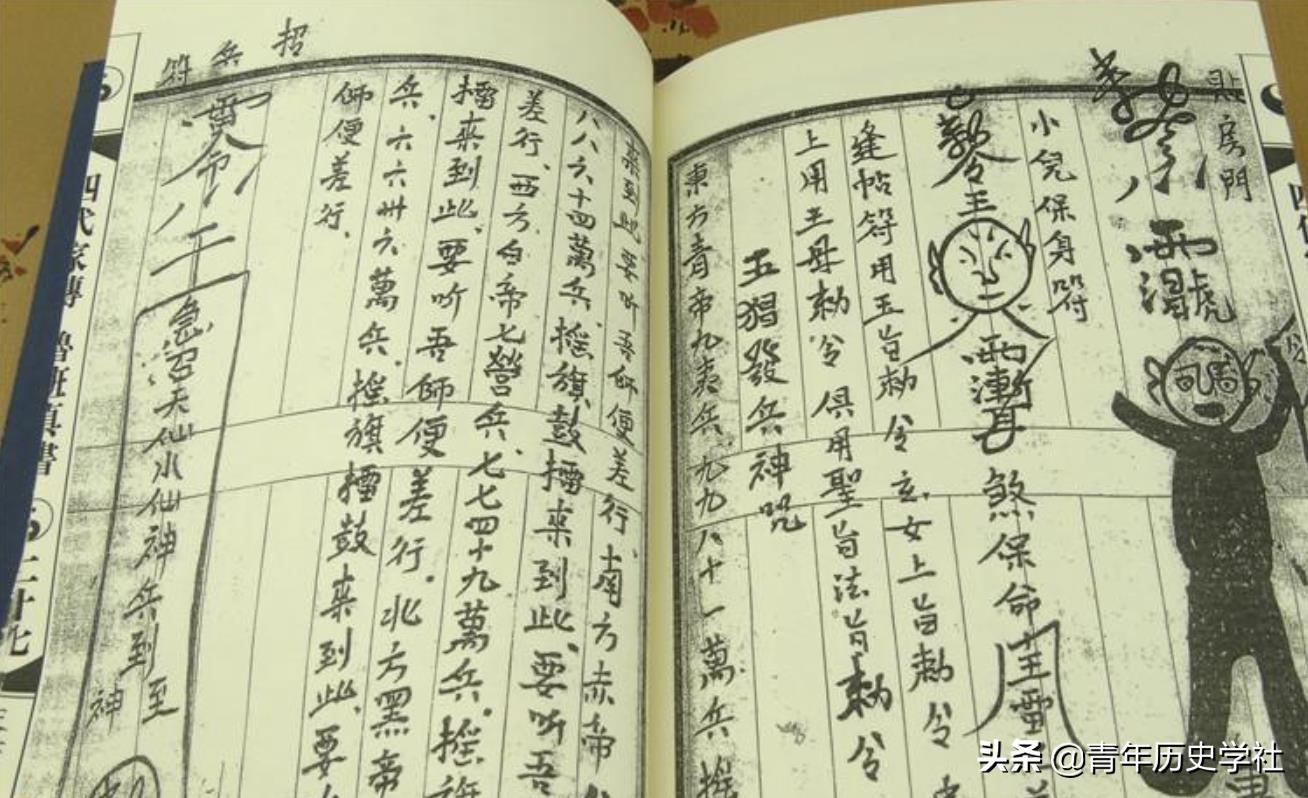 貼房門
小兒保身符
煞保命
縫帖符用玉旨勅令玄女上旨勅令
上用王母勅令俱用聖旨法旨勅令
五猖發兵神咒
東方青帝九夷兵九九八十一萬兵搖
來到此要听吾師便差行南方赤帝
八八六十四萬兵搖旗鼓擂來到此要听吾
差行西方白帝七營兵七七四十九萬兵搖旗
擂來到此要听吾師便差行北方黑帝
兵六六卅六萬兵搖旗擂鼓來到此要
師便差行
招兵符
急召天仙水仙神兵到
至
神
四代家傳 魯班真書
二十七
头条 @青年历史学社